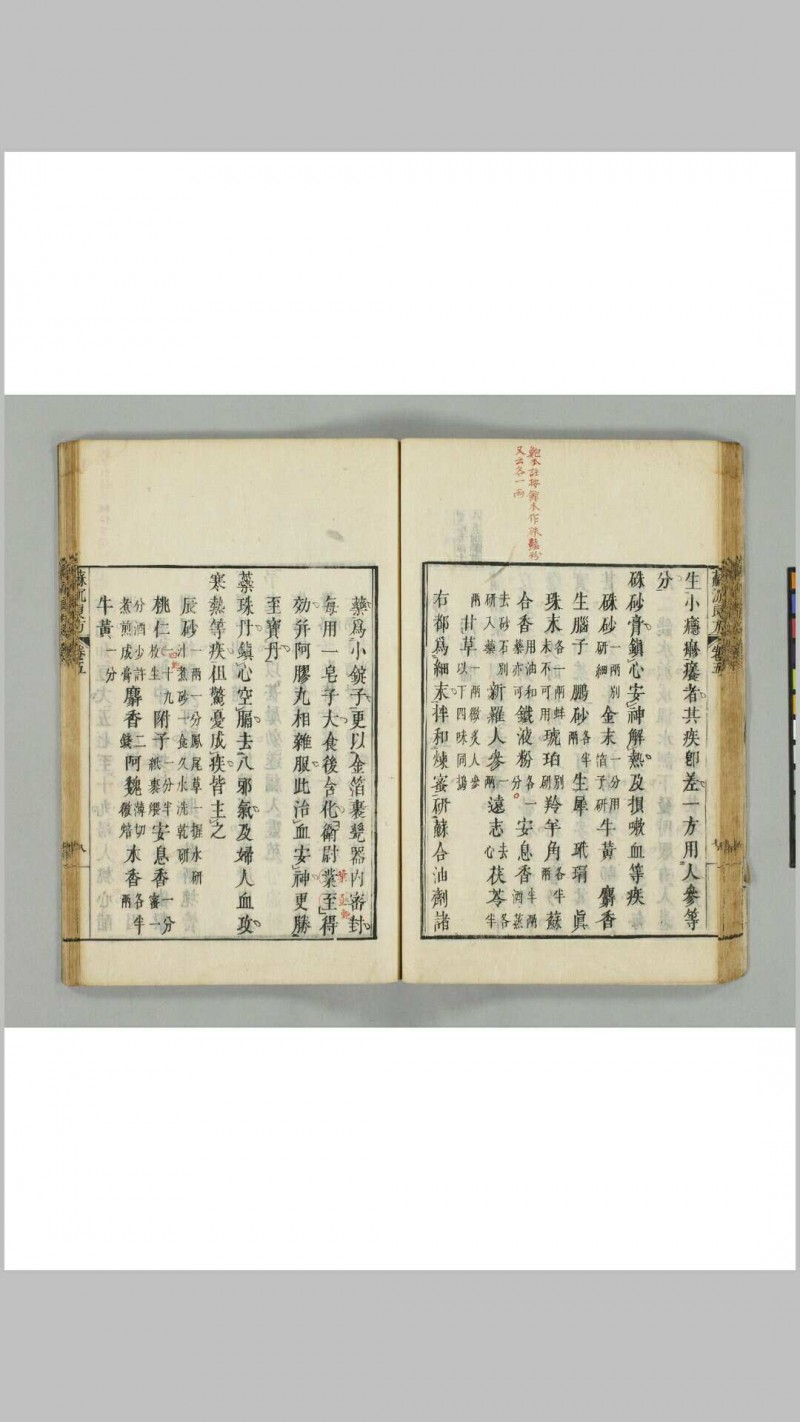 生小癮𤺋瘙者其疾卽差一方用人參等
分
硃砂膏鎮心安神解熱及損嗽血等疾
硃砂一兩別研細 金末一分用箔子研 牛黃 麝香
生腦子 鵬砂各半兩 生犀 玳瑁 眞
珠末各一兩蚌末不可用 琥珀別研 羚羊角各半兩 蘇
合香用油和藥亦可 鐵液粉各一分 安息香半兩酒蒸
去砂石別研入藥 新羅人參一兩 遠志去心 茯苓各半
兩 甘草一兩微炙人參以下四味同搗
右都爲細末拌和煉蜜研蘇合油劑諸
藥爲小錠子更以金箔裹瓷器內密封
每用一皂子大食後含化衛尉葉至得
効并阿膠丸相雜服此治血安神更勝
至寶丹
蘂珠丹鎮心空膈去八邪氣及婦人血攻
寒熱等疾但驚憂成疾皆主之
辰砂一兩一分鳳尾草一握水研汁煮砂一食久水洗乾研
桃仁四十九枚生 附子一分半紙裹煨 安息香一分蜜一
分酒少許煮煎成膏 麝香二錢 阿魏薄切微焙 木香各半兩
牛黃一分
蘇沈良方 卷五
八